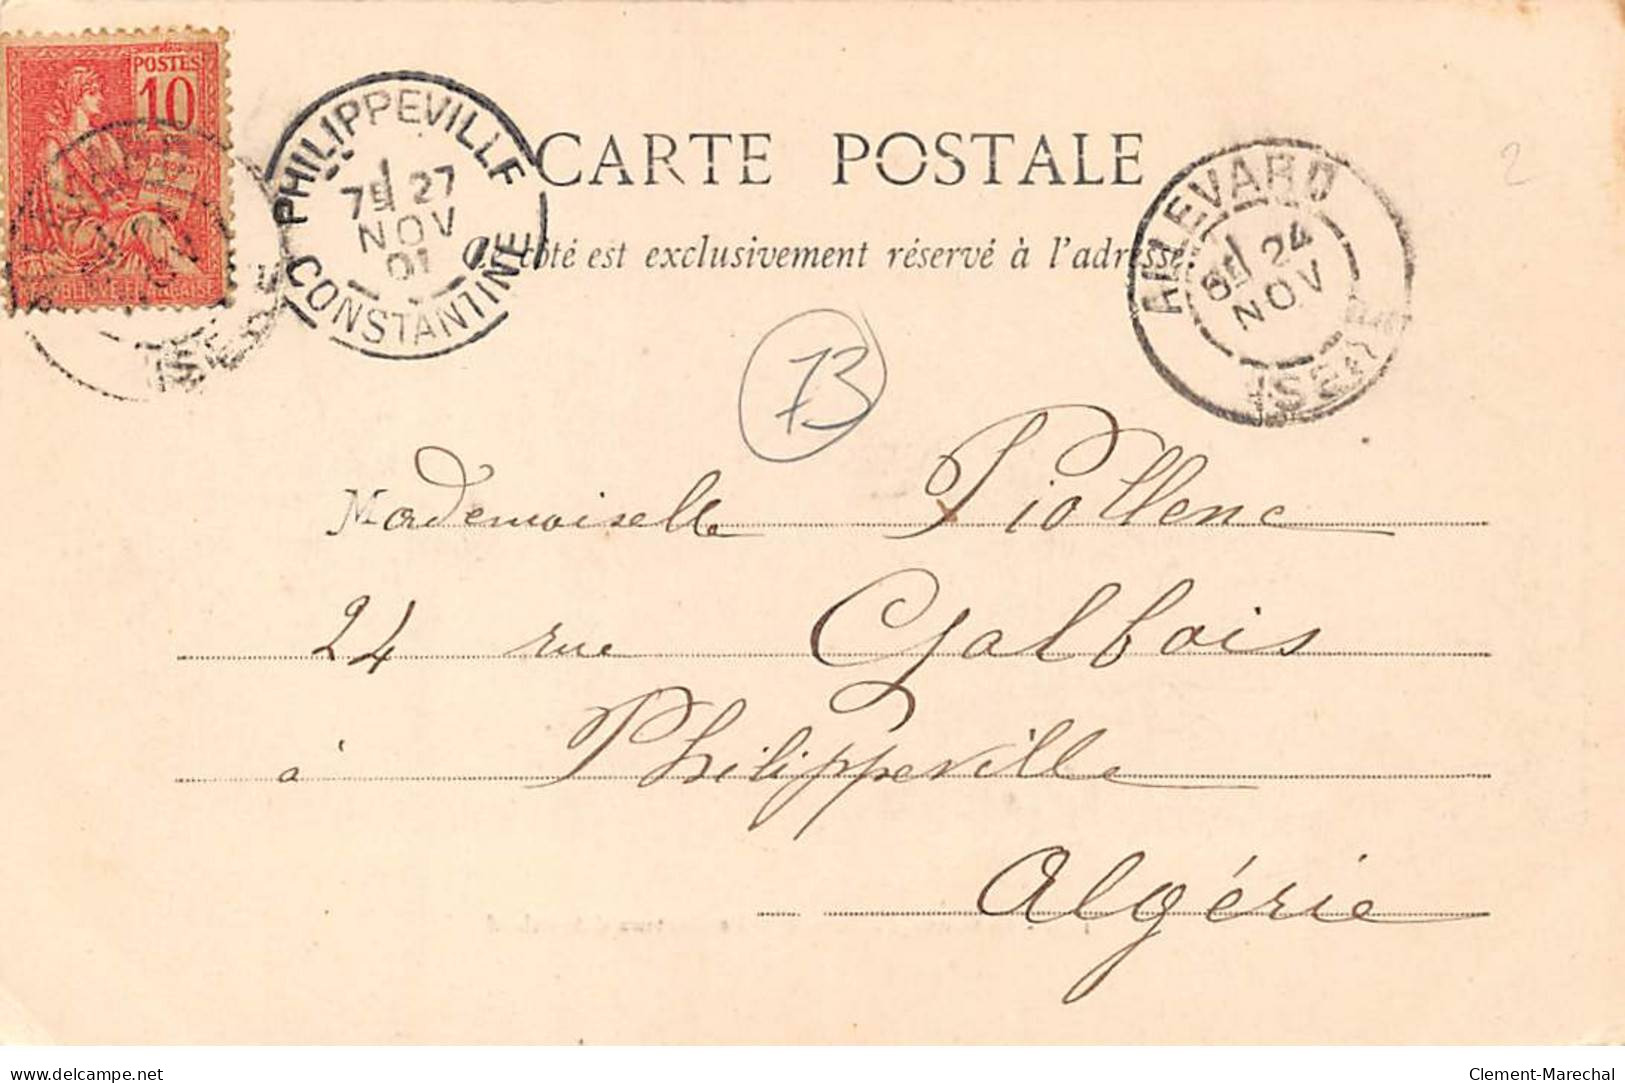 POSTES
10
PHILIPPEVILLE
7E 27
NOV
01
CONSTANTINE
CARTE POSTALE
Ce côté est exclusivement réservé à l'adresse.
ALLEVARD
8E 24
NOV
ISÈRE
2
73
Mademoiselle Piollenc
24 rue Galbois
à Philippeville
Algérie
delcampe.net
Clement-Marechal